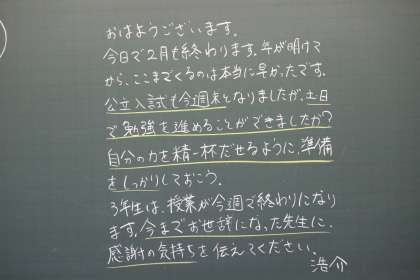 おはようございます。
今日で2月も終わります。年が明けて
から、ここまでくるのは本当に早かったです。
公立入試も今週末となりましたが、土日
で勉強を進めることができましたか?
自分の力を精一杯だせるように、準備
をしっかりしておこう。
3年生は、授業が今週で終わりになり
ます。今までお世辞になった先生に、
感謝の気持ちを伝えてください。
浩介